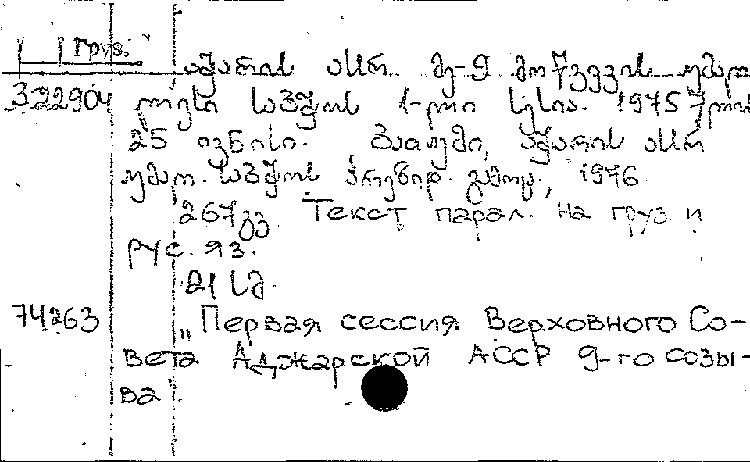 Груз.
აჭარის ასსრ მე-9 მოწვევის უმაღ
322904 ლესი საბჭოს 1-ლი სესია. 1975 წლის
25 ივნისი. ბათუმი, აჭარის ასსრ
უმაღ. საბჭოს პრეზიდ. გამოც., 1976.
267გვ. Текст парал. на груз и
рус. яз.
21 სმ.
74263 "Первая сессия Верховного Со-
вета Аджарской АССР 9-го созы-
ва".